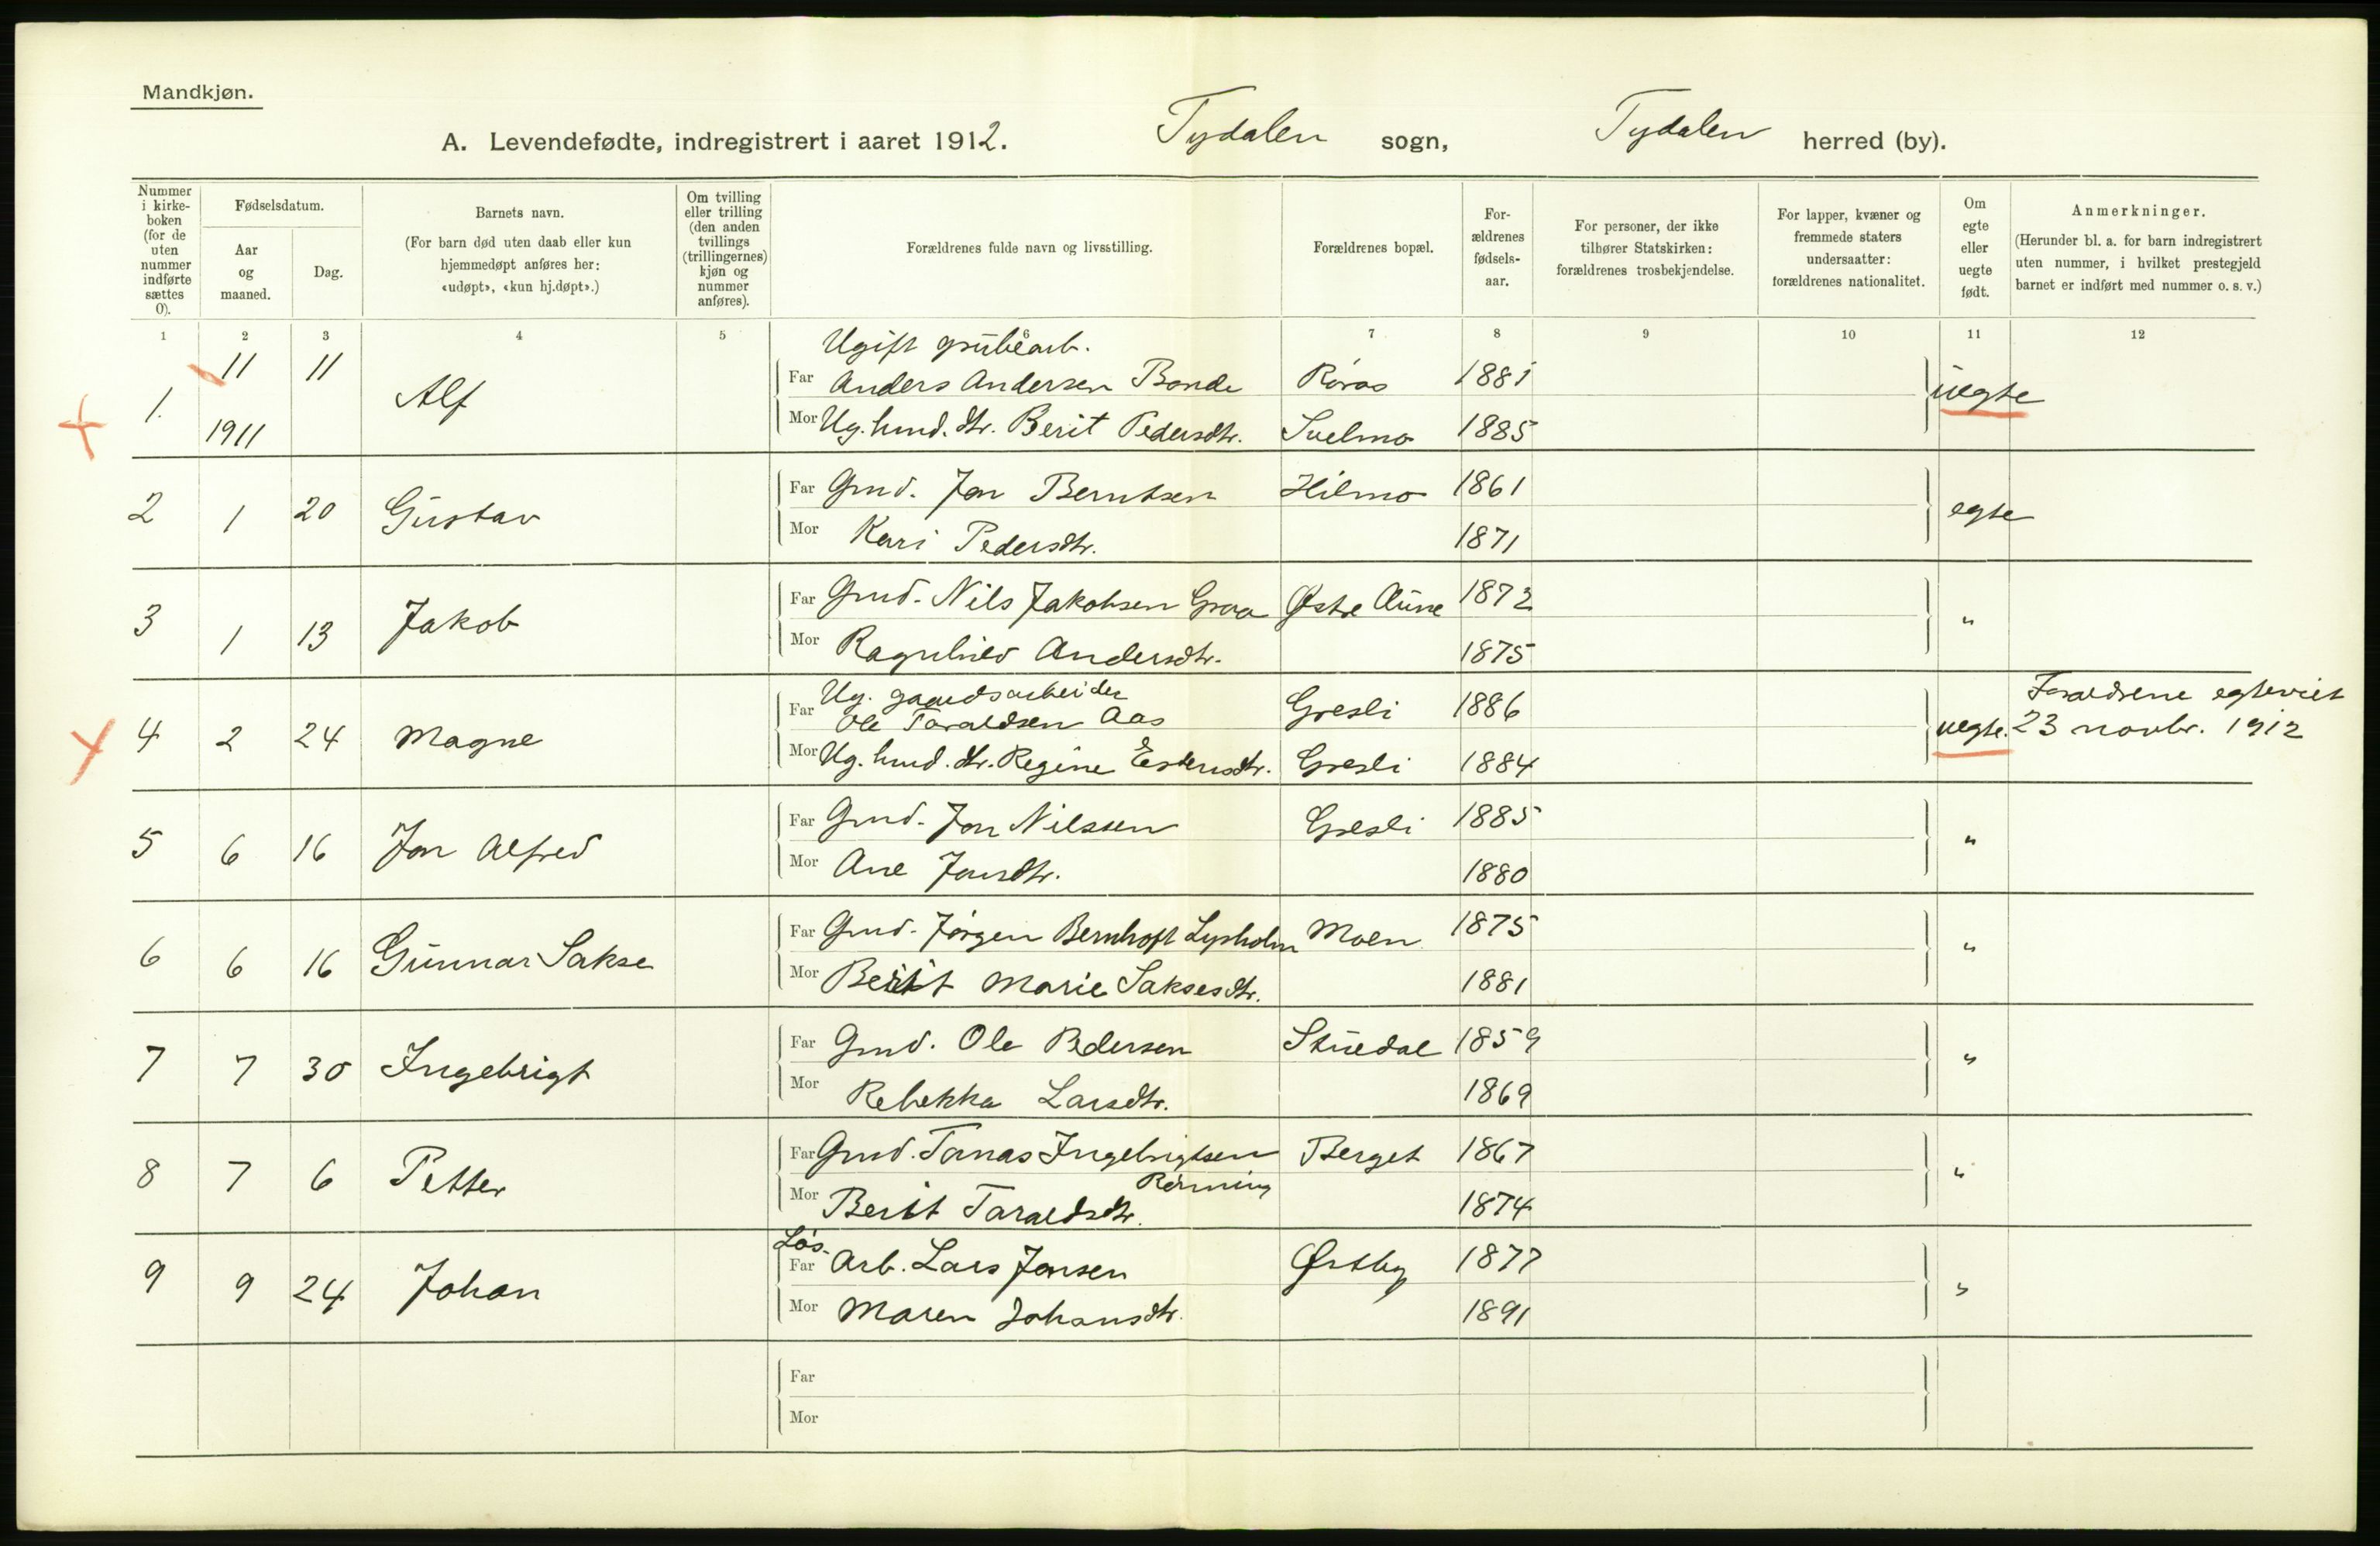 Mandkjøn.
A. Levendefødte, indregistrert i aaret 1912. Tydalen sogn, Tydalen herred (by).
Nummer i kirke-boken (for de uten nummer indførte sættes 0).
Fødselsdatum.
Aar og maaned.
Dag.
Barnets navn.
(For barn død uten daab eller kun hjemmedøpt anføres her: «udøpt», «kun hj.døpt».)
Om tvilling eller trilling (den anden tvillings (trillingernes) kjøn og nummer anføres).
Forældrenes fulde navn og livsstilling.
Forældrenes bopæl.
For-ældrenes fødsels-aar.
For personer, der ikke tilhører Statskirken: forældrenes trosbekjendelse.
For lapper, kvæner og fremmede staters undersaatter: forældrenes nationalitet.
Om egte eller uegte født.
Anmerkninger.
(Herunder bl. a. for barn indregistrert uten nummer, i hvilket prestegjeld barnet er indført med nummer o. s. v.)
1 2 3 4 5 6 7 8 9 10 11 12
Ugift grubearb.
1. 11 1911 11 Alf Far Anders Andersen Bonde Røros 1881 uegte
Mor Ug. Grmd. dtr. Berit Pedersdtr. Svelmo 1885
2 1 20 Gustav Far Grmd. Jon Berntsen Hilmo 1861 egte
Mor Kari Pedersdtr. 1871
3 1 13 Jakob Far Grmd. Nils Jakobsen Graa Østre Aune 1872 "
Mor Ragnhild Andersdtr. 1875
Ug. gaardsarbeider Forældrene egteviet
4 2 24 Magne Far Ole Taraldsen Aas Gresli 1886 uegte. 23 novbr. 1912
Mor Ug. Grmd. dtr. Regine Estensdtr. Gresli 1884
5 6 16 Jon Alfred Far Grmd. Jon Nilssen Gresli 1885 "
Mor Ane Jonsdtr. 1880
6 6 16 Gunnar Sakse Far Grmd. Jørgen Bernhoft Lysholm Moen 1875 "
Mor Berit Marie Saksesdtr. 1881
7 7 30 Ingebrigt Far Grmd. Ole Pedersen Stuedal 1859 "
Mor Rebekka Larsdtr. 1869
8 7 6 Petter Far Grmd. Tomas Ingebrigtsen Rønning Berget 1867 "
Mor Berit Taraldsdtr. 1874
Løs-
9 9 24 Johan Far Arb. Lars Jonsen Østby 1877 "
Mor Maren Johansdtr. 1891
Far
Mor